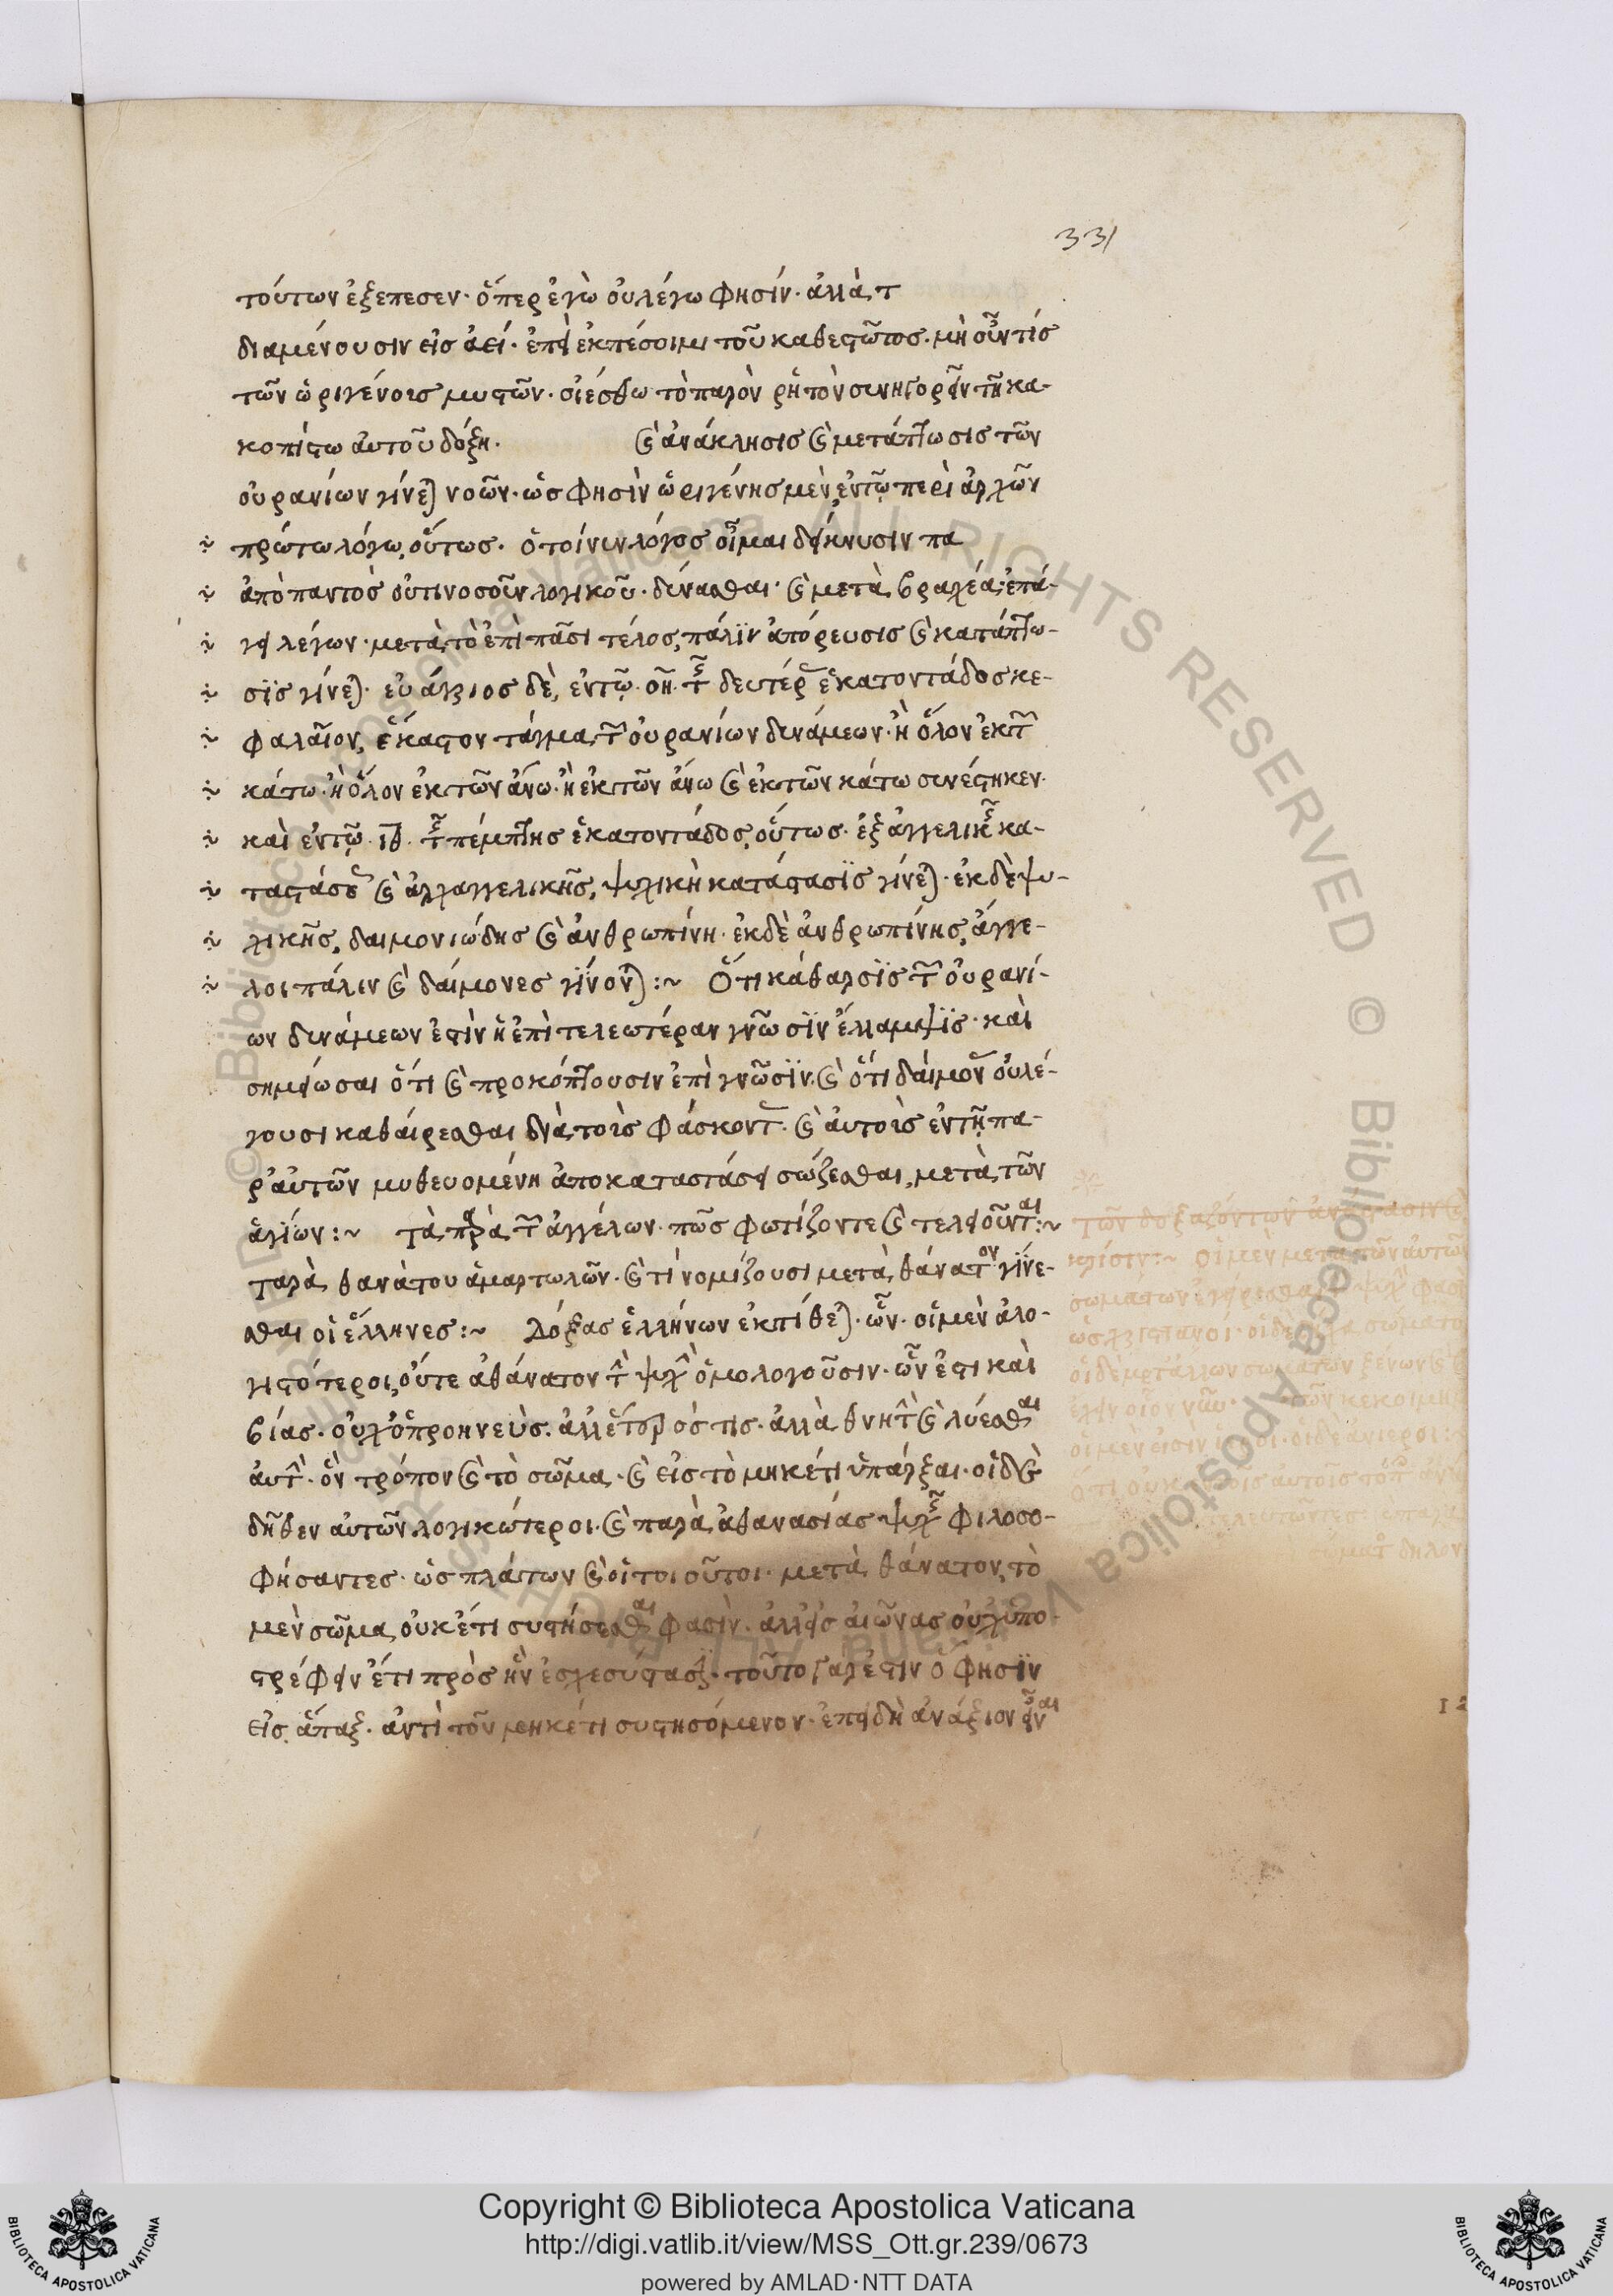 331
τούτων ἐξέπεσεν· ὅπερ ἐγὼ οὐ λέγω φησίν· ἀλλὰ τ
διαμένουσιν εἰς ἀεί· ἐπεὶ ἐκπέσοιμι τοῦ καθεστῶτος· μὴ οὖν τίς
τῶν ὠριγένους μυστῶν· οἰέσθω τὸ παρὸν ῥητὸν συνηγορεῖν τῇ κα-
κοπίστω αὐτοῦ δόξῃ· καὶ ἀνάκλησις καὶ μετάπτωσις τῶν
οὐρανίων γίνεται νοῶν· ὥς φησὶν ὠριγένης μὲν, ἐν τῷ περὶ ἀρχῶν
πρώτω λόγω, οὕτως· ὁ τοίνυν λόγος οἶμαι δείκνυσιν πα
ἀπὸ παντὸς οὑτινοσοῦν λογικοῦ· δύνασθαι· καὶ μετὰ βραχέα, ἐπά-
γει λέγων· μετὰ τὸ ἐπὶ πᾶσι τέλος, πάλϊν ἀπόρευσις καὶ κατάπτω-
σϊς γίνεται· εὐάγριος δὲ, ἐν τῷ· οη· τῆς δευτέρας ἑκατοντάδος κε-
φαλαῖον, ἕκαστον τάγμα τῶν οὐρανίων δυνάμεων· ἢ ὅλον ἐκ τῶν
κάτω· ἢ ὅλον ἐκ τῶν ἄνω· ἢ ἐκ τῶν ἄνω καὶ ἐκ τῶν κάτω συνέστηκεν·
καὶ ἐν τῷ· ιθ· τῆς πέμπτης ἑκατοντάδος, οὕτως· ἐξ ἀγγελικῆς κα-
ταστάσεως καὶ ἀρχαγγελικῆς, ψυχικὴ κατάστασϊς γίνεται· ἐκ δὲ ψυ-
χικῆς, δαιμονιώδης καὶ ἀνθρωπίνη· ἐκ δὲ ἀνθρωπίνης, ἄγγε-
λοι πάλιν καὶ δαίμονες γίνονται :~ Ὅτι κάθαρσϊς τῶν οὐρανί-
ων δυνάμεων ἐστὶν ἡ ἐπὶ τελεωτέραν γνῶσϊν ἔλλαμψϊς· καὶ
σημείωσαι ὅτι καὶ προκόπτουσιν ἐπὶ γνῶσϊν. καὶ ὅτι δαίμονας οὐ λέ-
γουσι καθαίρεσθαι διὰ τοὺς φάσκοντας· καὶ αὐτοὺς ἐν τῇ πα-
ρ' αὐτῶν μυθευομένη ἀποκαταστάσει σώζεσθαι, μετὰ τῶν
ἁγίων :~ τὰ πρῶτα τῶν ἀγγέλων· πῶς φωτίζονται καὶ τελειοῦνται :~
παρὰ θανάτου ἁμαρτωλῶν· καὶ τί νομίζουσι μετὰ θάνατον γίνε-
σθαι οἱ ἕλληνες :~ Δόξας ἑλλήνων ἐκτίθεται· ὧν· οἱ μὲν ἀλο-
γιστότεροι, οὔτε ἀθάνατον τὴν ψυχὴν ὁμολογοῦσιν· ὧν ἐστι καὶ
βίας· οὐχ ὁ πριηνεὺς· ἀλλ' ἕτερος τις· ἀλλὰ θνητὴν καὶ λύεσθαι
αὐτὴν· ὃν τρόπον καὶ τὸ σῶμα· καὶ εἰς τὸ μηκέτι ὑπάρξαι· οἱ δὲ
δῆθεν αὐτῶν λογικώτεροι· καὶ παρὰ ἀθανασίας ψυχῆς φιλοσο-
φήσαντες· ὡς πλάτων καὶ οἵτοι οὗτοι· μετὰ θάνατον, τὸ
μὲν σῶμα, οὐκέτι συστήσεσθαι φασὶν· ἀλλ' εἰς αἰῶνας οὐχ ὑπο-
στρέφειν ἔτι πρὸς ἣν ἔσχε σύστασιν· τοῦτο γάρ ἐστιν ὅ φησϊν
εἰς ἅπαξ· ἀντὶ τοῦ μηκέτι συστησόμενον· ἐπειδὴ ἀνάξιον εἶναι
Copyright © Biblioteca Apostolica Vaticana
http://digi.vatlib.it/view/MSS_Ott.gr.239/0673
powered by AMLAD·NTT DATA
BIBLIOTECA APOSTOLICA VATICANA
BIBLIOTECA APOSTOLICA VATICANA